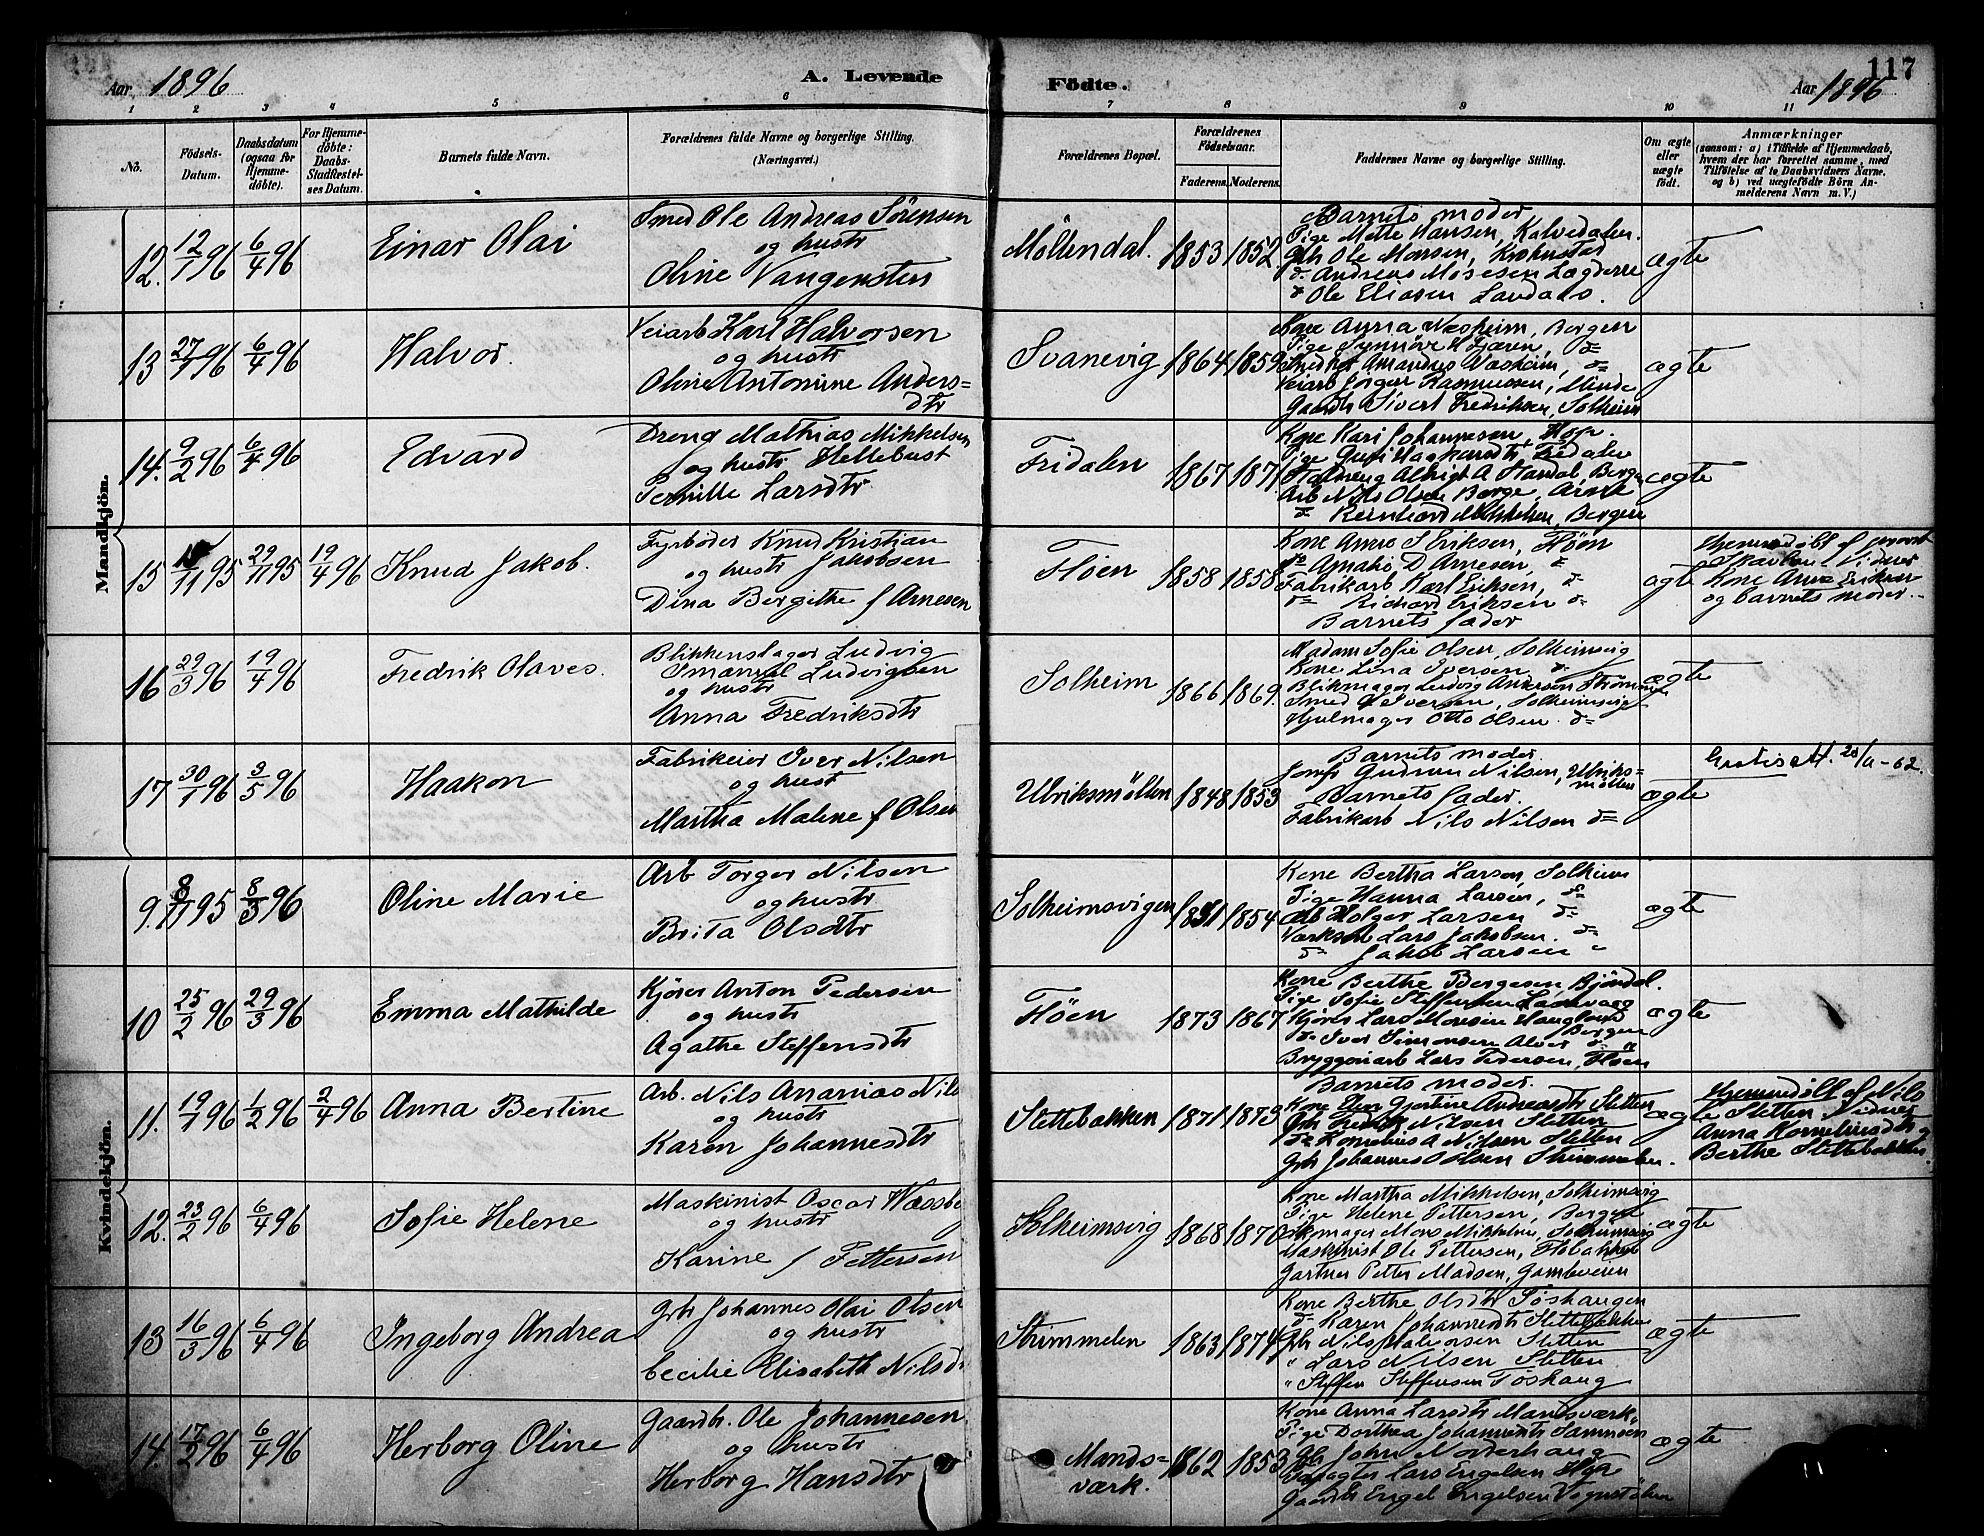 Aar 1896
A. Levende
Födte.
Aar 1896
117
1 2 3 4 5 6 7 8 9 10 11
No.
Födsels-
Datum.
Daabsdatum
(ogsaa for
Hjemme-
döbte).
For Hjemme-
döbte:
Daabs-
Stadfæstel-
ses Datum.
Barnets fulde Navn.
Forældrenes fulde Navne og borgerlige Stilling.
(Næringsvei.)
Forældrenes Bopæl.
Forældrenes
Födselsaar.
Faderens. Moderens.
Faddernes Navne og borgerlige Stilling.
Om ægte
eller
uægte
födt.
Anmærkninger
(saasom: a) i Tilfælde af Hjemmedaab,
hvem der har forrettet samme, med
Tilföielse af to Daabsvidners Navne,
og b) ved uægtefödte Börn An-
melderens Navn m. V.)
Mandkjön.
12. 12/1 96 6/4 96
Einar Olai
Smed Ole Andreas Sörensen
og hustr
Oline Vangensten
Möllendal. 1853 1852
Barnets moder
Pige Mette Hansen, Kalvedalen.
Gbr Ole Monsen, Krohnstad
d= Andreas Mosesen Lægderne
d= Ole Eliasen Landaas.
ægte
13 27/1 96 6/4 96
Halvor.
Veiarb Karl Halvorsen
og hustr
Oline Antonine Anders=
dtr
Svanevig 1864 1859
Kone Anna Næsheim, Bergen
Veiarb Jörgen Rasmussen, Minde
Gaardbr Sivert Fredriksen, Solheim
ægte
14. 9/2 96 6/4 96
Edvard
Dreng Mathias Mikkelsen
og hustr Hellebust
Pernille Larsdtr
Fridalen 1867 1871
Kone Kari Johannesen, Hop.
Arb Nils Olsen Borge, Arne
d= Bernhard Mikkelsen, Bergen
ægte
15 11 95 29/11 95 19/4 96
Knud Jakob.
Fyrböder Knud Kristian
og hustr Jakobsen
Dina Bergithe f Arnesen
Flöen 1858 1858
Kone Anne S Eriksen, Flöen
d= Amalie D Arnesen, d=
Fabrikarb Karl Eriksen, d=
d= Richard Eriksen d=
Barnets fader
ægte
Hjemmedöbt af
Vidner
Kone Anne Eriksen
og barnets moder.
16 29/3 96 19/4 96
Fredrik Olaves.
Blikkenslager Ludvig
Emanuel Ludvigsen
og hustr
Anna Fredriksdtr
Solheim 1866 1869.
Madam Sofie Olsen, Solheimsvig
Kone Lina Iversen d=
Blikmager Ludvig Andersen
Smed Iversen, Solheimsvig
Hjulmager Otto Olsen. d=
ægte
17 30/1 96 3/5 96
Haakon
Fabrikeier Iver Nilsen
og hust
Martha Malene f Olsen
Ulriksmöllen 1848 1853
Barnets moder
Jomfr Gudrun Nilsen, Ulriks=
möllen
Barnets fader.
Fabrikarb Nils Nilsen d=
ægte
Kvindekjön.
9. 8/11 95 8/3 96
Oline Marie
Arb Torger Nilsen
og hustr
Brita Olsdtr
Solheimsvigen 1851 1854
Kone Bertha Larsen Solheim
Pige Hanna Larsen, d=
Arb Holger Larsen d=
Værksarb Lars Jakobsen. d=
d= Jakob Larsen "
ægte
10 25/2 96 29/3 96
Emma Mathilde
Kjörer Anton Pedersen
og hustr
Agathe Steffensdtr
Flöen 1873 1867
Kone Berthe Bergesen Bjöndal.
Pige Sofie Steffensen
Kjörer Lars Monsen Haugland
Bergen
d= Iver Simonsen Alver d=
Bryggeriarb Lars Pedersen, Flöen
ægte
11. 19/1 96 1/2 96 2/4 96
Anna Bertine
Arb. Nils Ananias Nils
og hustr
Karen Johannesdtr
Slettebakken 1871 1873
Barnets moder.
Kone Gjertine Andreasdtr Sletten
Gbr Nilsen Sletten
d= Kornelius A Nilsen Sletten
Gbr Johannes Olsen Strimmelen.
ægte
Hjemmedöbt af Nils
Sletten Vidner
Anna Korneliusdtr
Berthe Slettebakken
12. 23/2 96 6/4 96
Sofie Helene
Maskinist Oscar
og hustr
Karine f Pettersen
Solheimsvig 1868 1870
Kone Martha Mikkelsen, Solheimsvig
Pige Helene Pettersen, Bergen
Maskinist Ole Pettersen,
Gartner Petter Madsen, Gamleveien
ægte
13 16/3 96 6/4 96
Ingeborg Andrea
Gbr Johannes Olai Olsen
og hustr
Cecilie Elisabeth Nilsd
Strimmelen 1863 1874
Kone Berthe Olsdtr Töshaugen
d= Karen Johannesdtr Slettebakken
Gbr Nils Halvorsen Sletten
" Lars Nilsen Sletten
" Steffen Steffensen Töshaug
ægte
14. 17/2 96 6/4 96
Herborg Oline
Gaardbr. Ole Johannesen
og hustr
Herborg Hansdtr
Mands=
værk. 1862 1853
Kone Anna Larsdtr Mandsværk
Pige Dorthea Johannesdtr
Gbr John Norderhaug
Lars Engelsen
Gaardbr Engel Engelsen
ægte